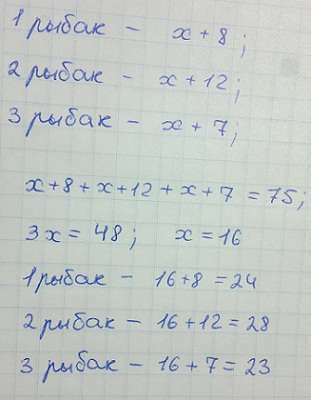 1 рыбак - x + 8;
2 рыбак - x + 12;
3 рыбак - x + 7;
x + 8 + x + 12 + x + 7 = 75;
3x = 48; x = 16
1 рыбак - 16 + 8 = 24
2 рыбак - 16 + 12 = 28
3 рыбак - 16 + 7 = 23